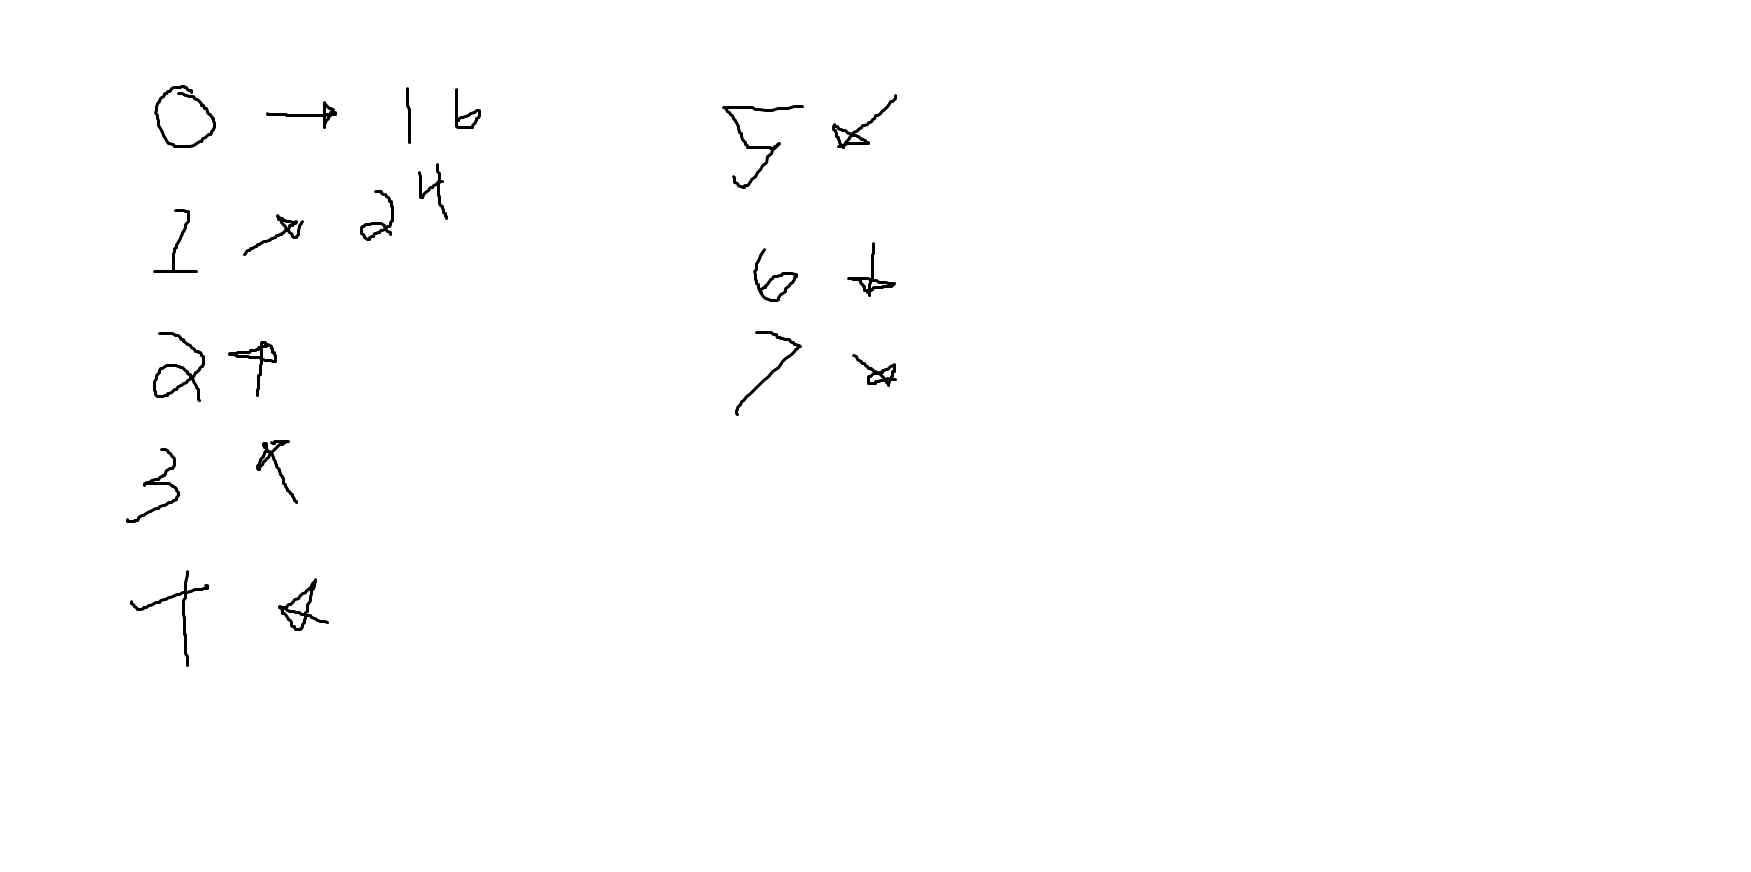 0 → 16
1 ↗ 2⁴
2 ↑
3 ↖
4 ←
5 ↙
6 ↓
7 ↘